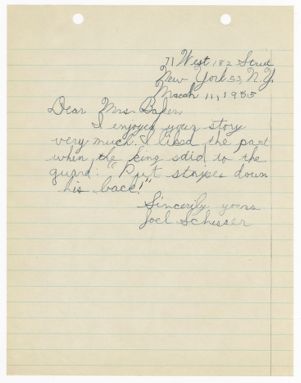 71 West 182 Strid
New York 53, N.Y.
March 11, 1955
Dear Mrs. Baker,
I enjoyed your story
very much. I liked the part
when the king said to the
guard: "Put stripes down
his back!"
Sincerily yours
Joel Schisser